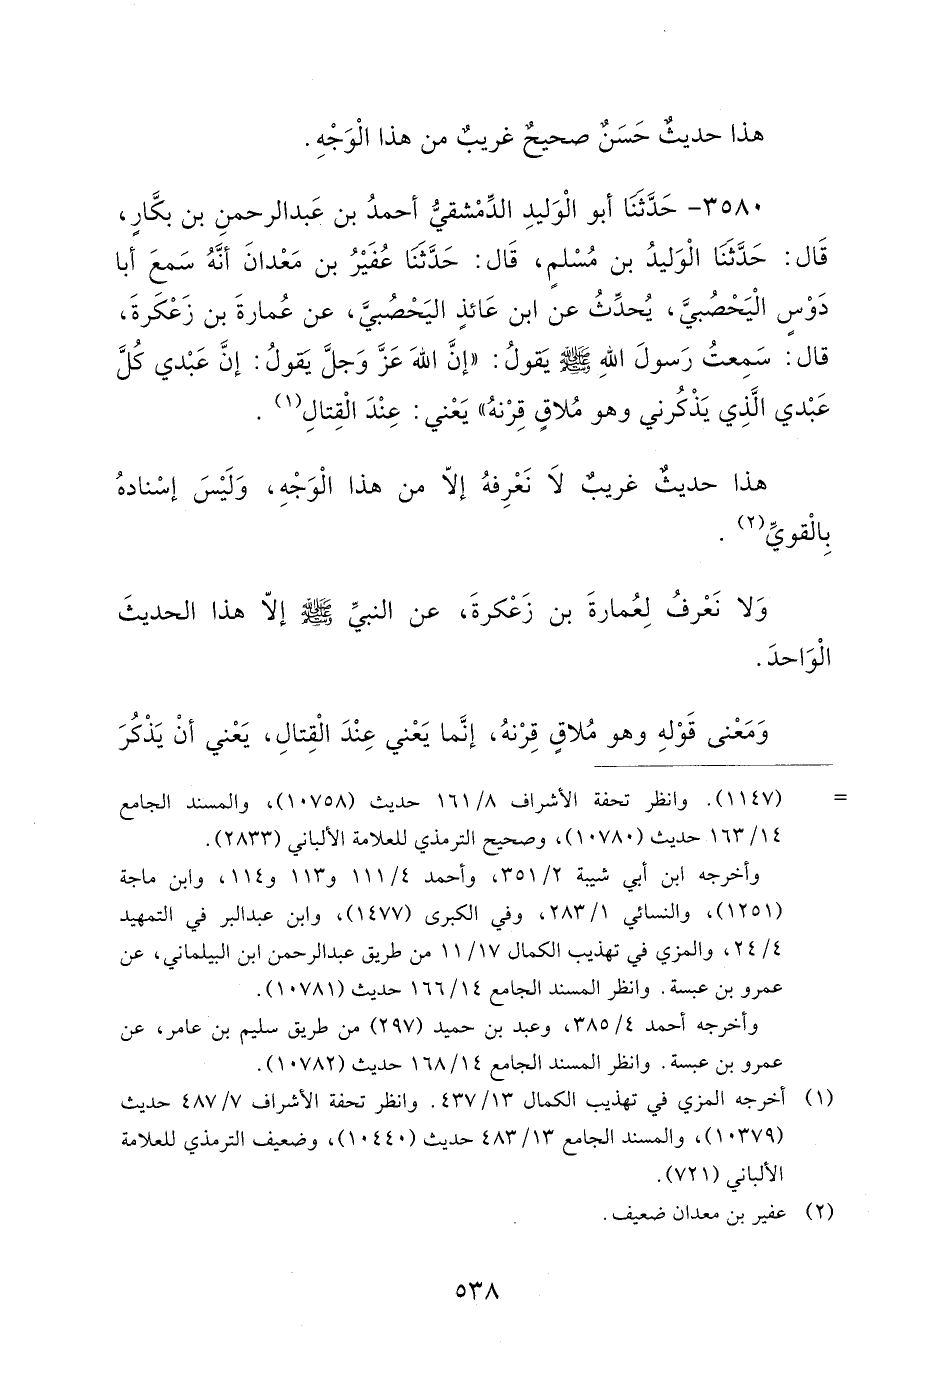 هذا حديثٌ حَسَنٌ صحيحٌ غريبٌ من هذا الْوَجْهِ.
٣٥٨٠- حَدَّثَنَا أبو الْوَليدِ الدِّمْشقيُّ أحمدُ بن عَبدالرحمنِ بن بكَّارٍ،
قَال: حَدَّثَنَا الْوَليدُ بن مُسْلمٍ، قَال: حَدَّثَنَا عُفَيْرُ بن مَعْدانَ أنَّهُ سَمعَ أبا
دَوْسٍ الْيَحْصُبيَّ، يُحدِّثُ عن ابن عَائذٍ اليَحْصُبيَّ، عن عُمارةَ بن زَعْكرةَ،
قال: سَمِعتُ رَسولَ اللهِ ﷺ يَقولُ: «إنَّ اللهَ عَزَّ وَجلَّ يَقولُ: إنَّ عَبْدي كُلَّ
عَبْدي الَّذِي يَذْكُرني وهو مُلاقٍ قِرْنهُ» يَعْني: عِنْدَ الْقِتالِ(١).
هذا حديثٌ غريبٌ لاَ نَعْرِفهُ إلاّ من هذا الْوَجْهِ، وَلَيْسَ إسْنادهُ
بِالْقويِّ(٢).
وَلا نَعْرفُ لِعُمارةَ بن زَعْكرةَ، عن النبيِّ ﷺ إلاّ هذا الحديثَ
الْوَاحدَ.
وَمَعْنى قَوْلهِ وهو مُلاقٍ قِرْنهُ، إنَّما يَعْني عِنْدَ الْقِتالِ، يَعْني أنْ يَذْكُرَ
= (١١٤٧). وانظر تحفة الأشراف ٨/ ١٦١ حديث (١٠٧٥٨)، والمسند الجامع
١٤/ ١٦٣ حديث (١٠٧٨٠)، وصحيح الترمذي للعلامة الألباني (٢٨٣٣).
وأخرجه ابن أبي شيبة ٢/ ٣٥١، وأحمد ٤/ ١١١ و١١٣ و١١٤، وابن ماجة
(١٢٥١)، والنسائي ١/ ٢٨٣، وفي الكبرى (١٤٧٧)، وابن عبدالبر في التمهيد
٤/ ٢٤، والمزي في تهذيب الكمال ١٧/ ١١ من طريق عبدالرحمن ابن البيلماني، عن
عمرو بن عبسة. وانظر المسند الجامع ١٤/ ١٦٦ حديث (١٠٧٨١).
وأخرجه أحمد ٤/ ٣٨٥، وعبد بن حميد (٢٩٧) من طريق سليم بن عامر، عن
عمرو بن عبسة. وانظر المسند الجامع ١٤/ ١٦٨ حديث (١٠٧٨٢).
(١) أخرجه المزي في تهذيب الكمال ١٣/ ٤٣٧. وانظر تحفة الأشراف ٧/ ٤٨٧ حديث
(١٠٣٧٩)، والمسند الجامع ١٣/ ٤٨٣ حديث (١٠٤٤٠)، وضعيف الترمذي للعلامة
الألباني (٧٢١).
(٢) عفير بن معدان ضعيف.
٥٣٨